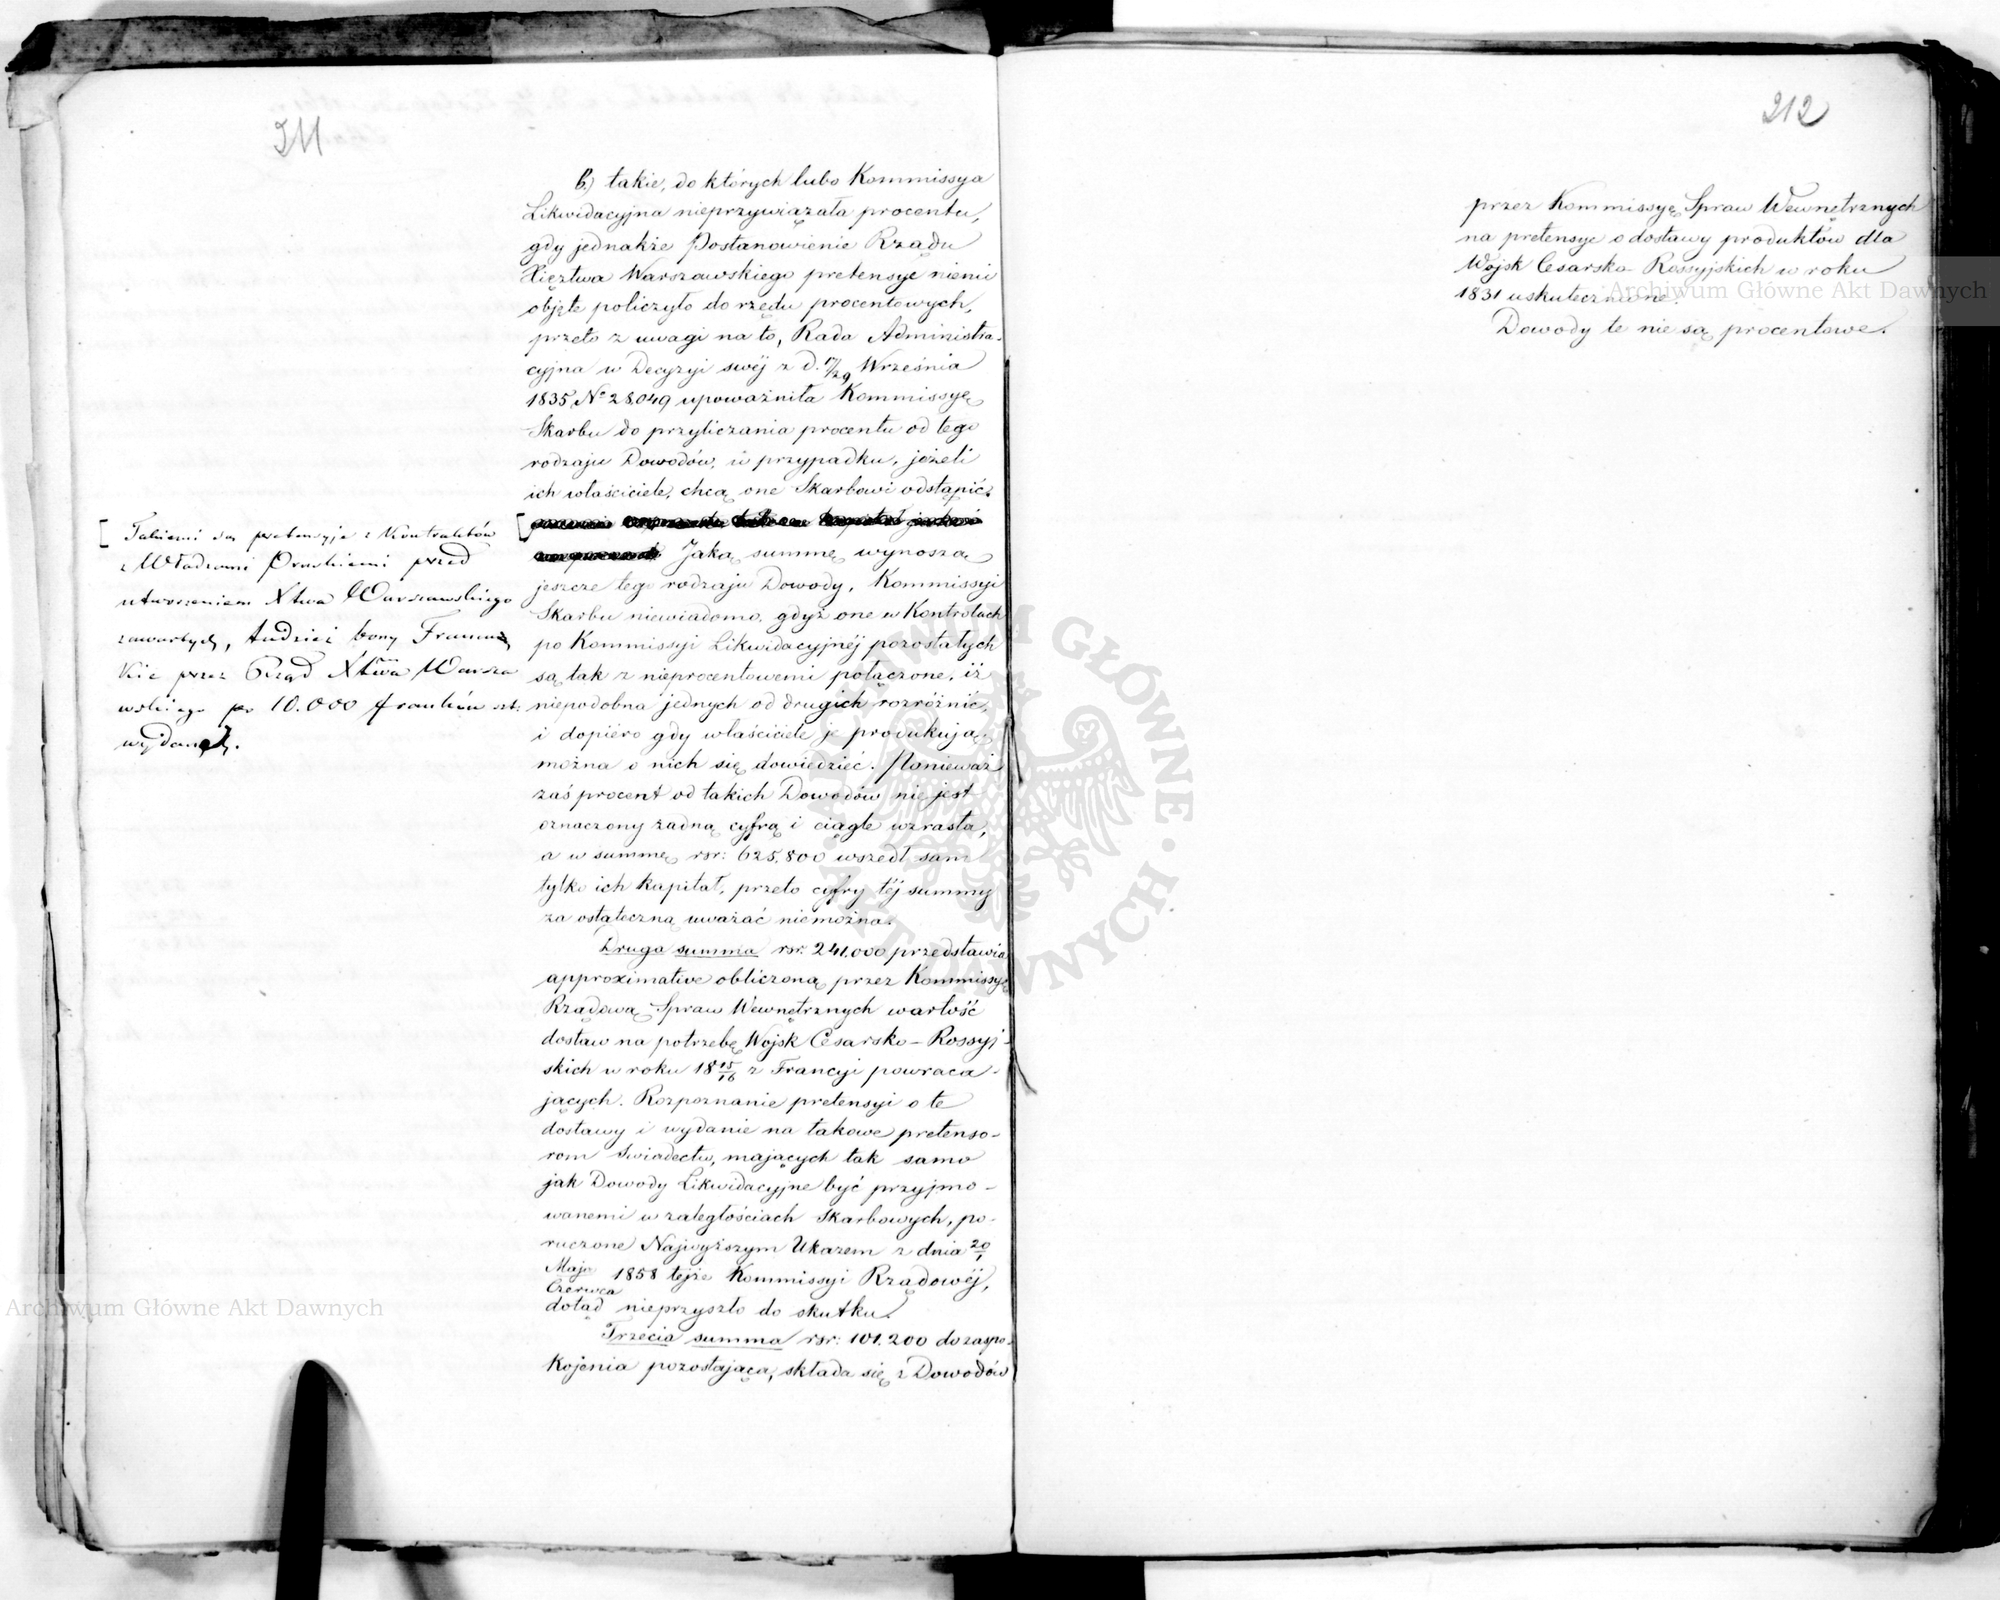 211
b.) takie, do których lubo Kommissya
Likwidacyjna nieprzywiązała procentu,
gdy jednakże Postanowienie Rządu
Xięztwa Warszawskiego pretensye niemi
objęte policzyło do rzędu procentowych,
przeto z uwagi na to, Rada Administra-
cyjna w Decyzyi swéj z d. 17/29 Września
1835 No 28.049 upoważniła Kommissyę
Skarbu do przyliczania procentu od tego
rodzaju Dowodów, w przypadku, jeżeli
ich właściciele, chcą one Skarbowi odstąpić.
[
Jaką summę wynoszą
jeszcze tego rodzaju Dowody, Kommissyi
Skarbu niewiadomo, gdyż one w Kontrolach
po Kommissyi Likwidacyjnéj pozostałych
są tak z nieprocentowemi połączone, iż
niepodobna jednych od drugich rozróżnić,
i dopiéro gdy właściciele je produkują,
można o nich się dowiedziéć. Ponieważ
zaś procent od takich Dowodów nie jest
oznaczony żadną cyfrą i ciągle wzrasta,
a w summę rsr: 625.800 wszedł sam
tylko ich kapitał, przeto cyfry téj summy
za ostateczną uważać niemożna.
Druga summa rsr. 241.000 przedstawia
approximative obliczoną przez Kommissyę
Rządową Spraw Wewnętrznych wartość
dostaw na potrzebę Wojsk Cesarsko-Rossyj-
skich w roku 18 15/16 z Francyi powraca-
jących. Rozpoznanie pretensyi o te
dostawy i wydanie na takowe pretenso-
rom świadectw, mających tak samo
jak Dowody Likwidacyjne być przyjmo-
wanemi w zaległościach Skarbowych, po-
ruczone Najwyższym Ukazem z dnia 20/1
Maja/Czerwca 1858 tejże Kommissyi Rządowéj,
dotąd nieprzyszło do skutku.
Trzecia summa rsr: 101.200 do zaspo-
kojenia pozostająca, składa się z Dowodów
[ Takiemi są pretensyje z Kontraktów
z Władzami Pruskiemi przed
utworzeniem Xtwa Warszawskiego
zawartych, tudzież bony Francuz
kie przez Rząd Xtwa Warsza
wskiego po 10.000 franków szt:
wydanych.
212
przez Kommissyę Spraw Wewnętrznych
na pretensye o dostawy produktów dla
Wojsk Cesarsko-Rossyjskich w roku
1831 uskutecznione.
Dowody te nie są procentowe.
Archiwum Główne Akt Dawnych
Archiwum Główne Akt Dawnych
ARCHIWUM GŁÓWNE AKT DAWNYCH